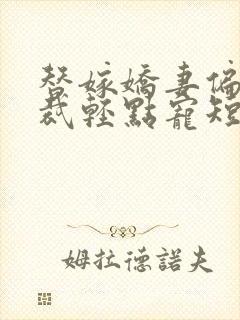 替嫁嬌妻偏
裁輕點寵短
姆拉德諾夫